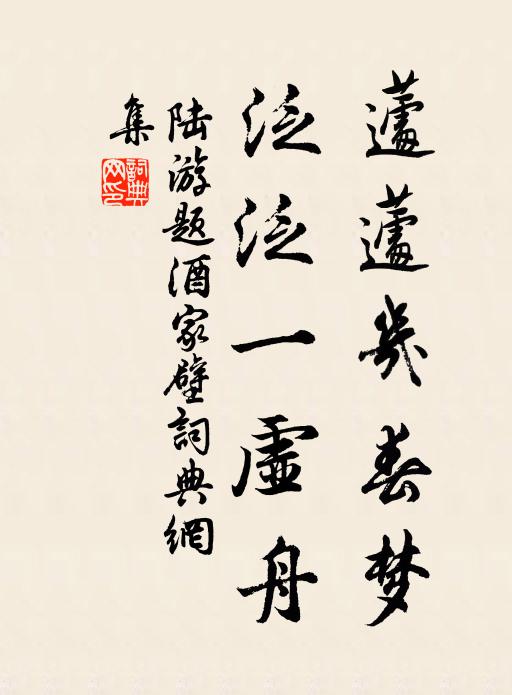 蘧蘧幾春梦
泛泛一虚舟
陆游题酒家壁詞典網
集
詞典网印